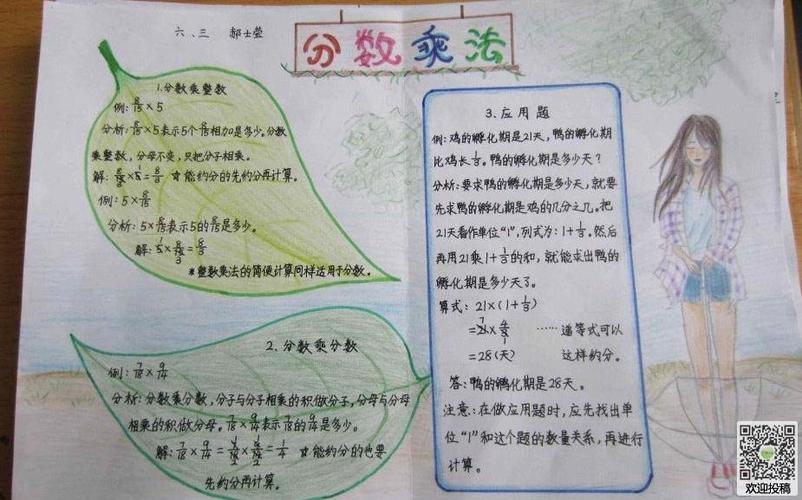 六、三 郝士莹
分数乘法
1.分数乘整数
例: 8/15×5
分析: 8/15×5表示5个8/15相加是多少。分数
乘整数,分母不变,只把分子相乘。
解: 8/15×5=8/3 ☆能约分的先约分再计算。
例: 5×8/15
分析: 5×8/15表示5的8/15是多少。
解: 5×8/15=8/3
*整数乘法的简便计算同样适用于分数。
2.分数乘分数
例: 7/18×9/14
分析: 分数乘分数,分子与分子相乘的积做分子,分母与分母
相乘的积做分母。7/18×9/14表示7/18的9/14是多少。
解: 7/18×9/14=7/18×9/14=1/4 ☆能约分的也要
先约分再计算。
3.应用题
例:鸡的孵化期是21天,鸭的孵化期
比鸡长1/3。鸭的孵化期是多少天?
分析:要求鸭的孵化期是多少天,就要
先求鸭的孵化期是鸡的几分之几。把
21天看作单位"1",列式为:1+1/3。然后
再用21乘1+1/3的和,就能求出鸭的
孵化期是多少天了。
算式: 21×(1+1/3)
=21×4/3 ……递等式可以
=28(天) 这样约分。
答:鸭的孵化期是28天。
注意:在做应用题时,应先找出单
位"1"和这个题的数量关系,再进行
计算。
欢迎投稿